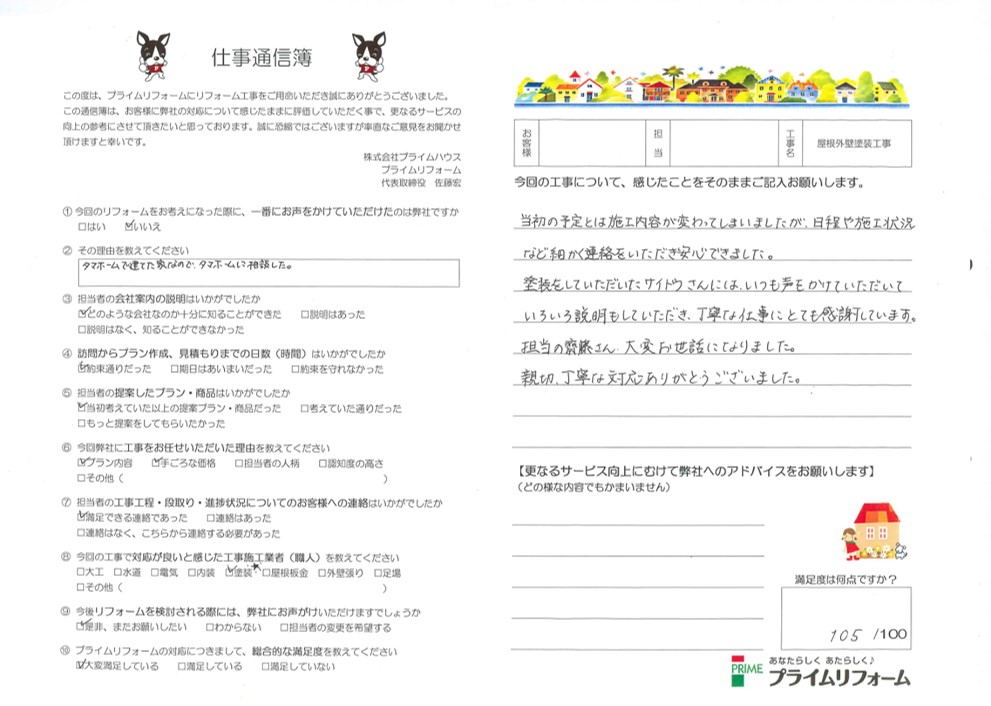 仕事通信簿
この度は、プライムリフォームにリフォーム工事をご用命いただき誠にありがとうございました。
この通信簿は、お客様に弊社の対応について感じたままに評価していただく事で、更なるサービスの
向上の参考にさせて頂きたいと思っております。誠に恐縮ではございますが率直なご意見をお聞かせ
頂けますと幸いです。
株式会社プライムハウス
プライムリフォーム
代表取締役 佐藤宏
① 今回のリフォームをお考えになった際に、一番にお声をかけていただけたのは弊社ですか
□はい ☑いいえ
② その理由を教えてください
タマホームで建てた家なので、タマホームに相談した。
③ 担当者の会社案内の説明はいかがでしたか
☑どのような会社なのか十分に知ることができた □説明はあった
□説明はなく、知ることができなかった
④ 訪問からプラン作成、見積もりまでの日数（時間）はいかがでしたか
☑約束通りだった □期日はあいまいだった □約束を守れなかった
⑤ 担当者の提案したプラン・商品はいかがでしたか
☑当初考えていた以上の提案プラン・商品だった □考えていた通りだった
□もっと提案をしてもらいたかった
⑥ 今回弊社に工事をお任せいただいた理由を教えてください
☑プラン内容 ☑手ごろな価格 □担当者の人柄 □認知度の高さ
□その他（ ）
⑦ 担当者の工事工程・段取り・進捗状況についてのお客様への連絡はいかがでしたか
☑満足できる連絡であった □連絡はあった
□連絡はなく、こちらから連絡する必要があった
⑧ 今回の工事で対応が良いと感じた工事施工業者（職人）を教えてください
□大工 □水道 □電気 □内装 ☑塗装★ □屋根板金 □外壁張り □足場
□その他（ ）
⑨ 今後リフォームを検討される際には、弊社にお声がけいただけますでしょうか
☑是非、またお願いしたい □わからない □担当者の変更を希望する
⑩ プライムリフォームの対応につきまして、総合的な満足度を教えてください
☑大変満足している □満足している □満足していない
お客様 担当 工事名 屋根外壁塗装工事
今回の工事について、感じたことをそのままご記入お願いします。
当初の予定とは施工内容が変わってしまいましたが、日程や施工状況
など細かく連絡をいただき安心できました。
塗装をしていただいたサイトウさんには、いつも声をかけていただいて
いろいろ説明もしていただき、丁寧な仕事にとても感謝しています。
担当の齋藤さん、大変お世話になりました。
親切、丁寧な対応ありがとうございました。
【更なるサービス向上にむけて弊社へのアドバイスをお願いします】
（どの様な内容でもかまいません）
満足度は何点ですか？
105 /100
PRIME あなたらしく あたらしく♪
プライムリフォーム